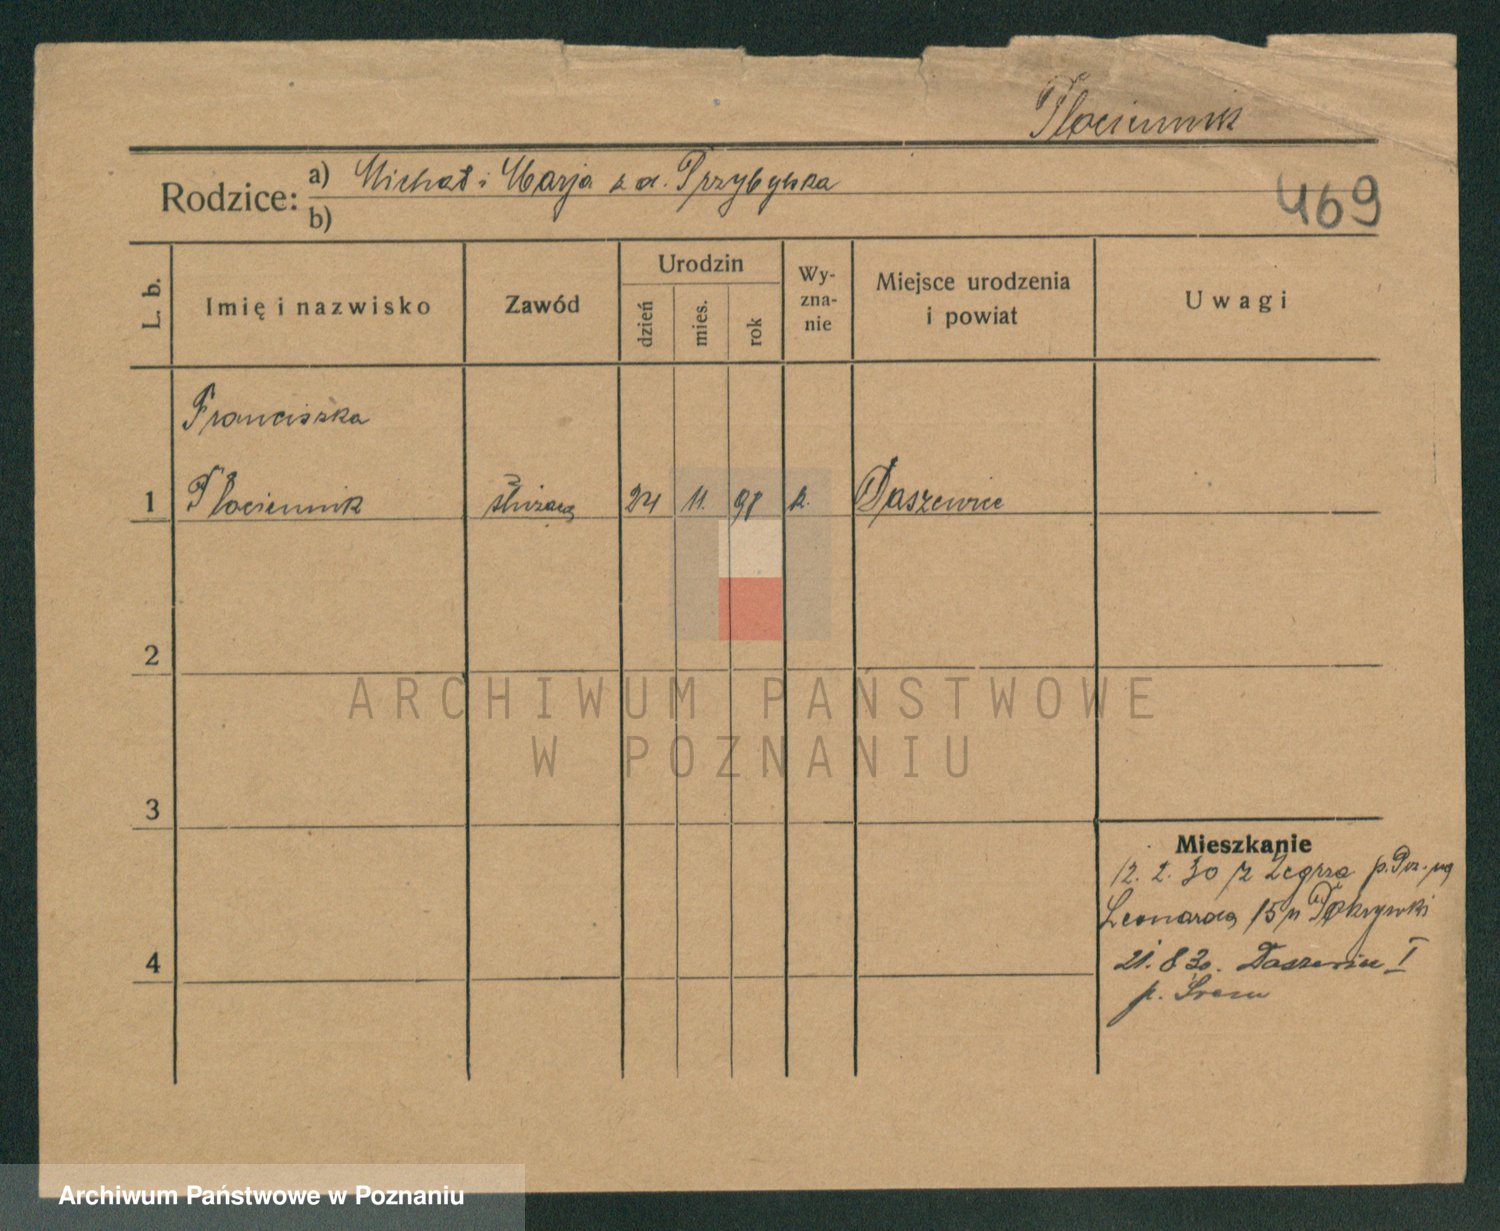 Płociennik
Rodzice: a) Michał i Marja z d. Przybylska
b)
469
L. b.
Imię i nazwisko
Zawód
Urodzin
dzień
mies.
rok
Wy-
zna-
nie
Miejsce urodzenia
i powiat
Uwagi
Franciszka
1 Płociennik służąca 24 11. 98 k. Daszewice
2
3
4
Mieszkanie
12. 2. 30 z Zegrza p. Poz.
Leonarda 15 u
21. 8 30. Daszewice I
p. Śrem
ARCHIWUM PAŃSTWOWE
W POZNANIU
Archiwum Państwowe w Poznaniu